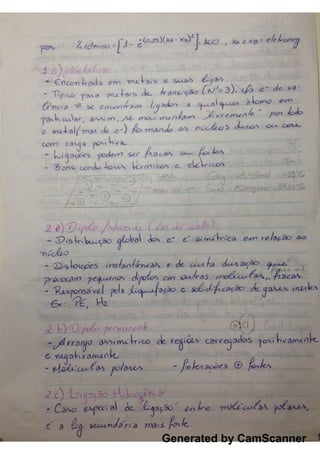 por: % iônico = [1 - e^(-(0,25)(xa - xb)²)].100 , xa e xb = eletroneg.
1 c) Metálica
- Encontrada em metais e suas ligas.
- Típico para metais de transição (Nº 3), e/s e⁻ de va-
lência ñ se encontram ligados a qualquer átomo em
particular, assim, se movimentam "livremente" por todo
o metal (mar de e⁻) formando os núcleos duros ou core
com carga positiva.
- Ligações podem ser fracas ou fortes
- Bons condutores térmicos e elétricos
mar de e⁻
2 a) Dipolo Induzido (Van der Walls)
- Distribuição global dos e⁻ é simétrica em relação ao
núcleo
- Distorções instantâneas e de curta duração que
provocam pequenos dipolos em outras moléculas, fracas.
- Responsável pela liquefação e solidificação de gases inertes
Ex: PE, H₂
2 b) Dipolo permanente
- Arranjo assimétrico de regiões carregadas positivamente
e negativamente
- Moléculas polares - Interações ⊕ fortes
2 c) Ligação Hidrogênio
- Caso especial de "ligação" entre moléculas polares,
é a lig. secundária mais forte
Generated by CamScanner